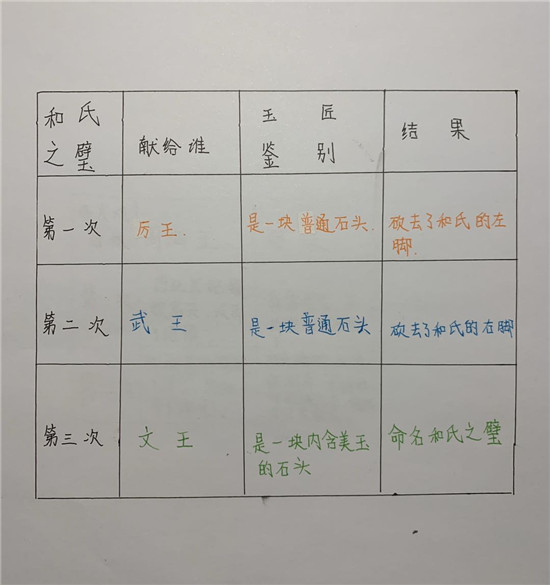 和氏
之璧
献给谁
玉匠
鉴别
结果
第一次
厉王.
是一块普通石头.
砍去了和氏的左
脚.
第二次
武王
是一块普通石头
砍去了和氏的右脚
第三次
文王
是一块内含美玉
的石头
命名和氏之璧